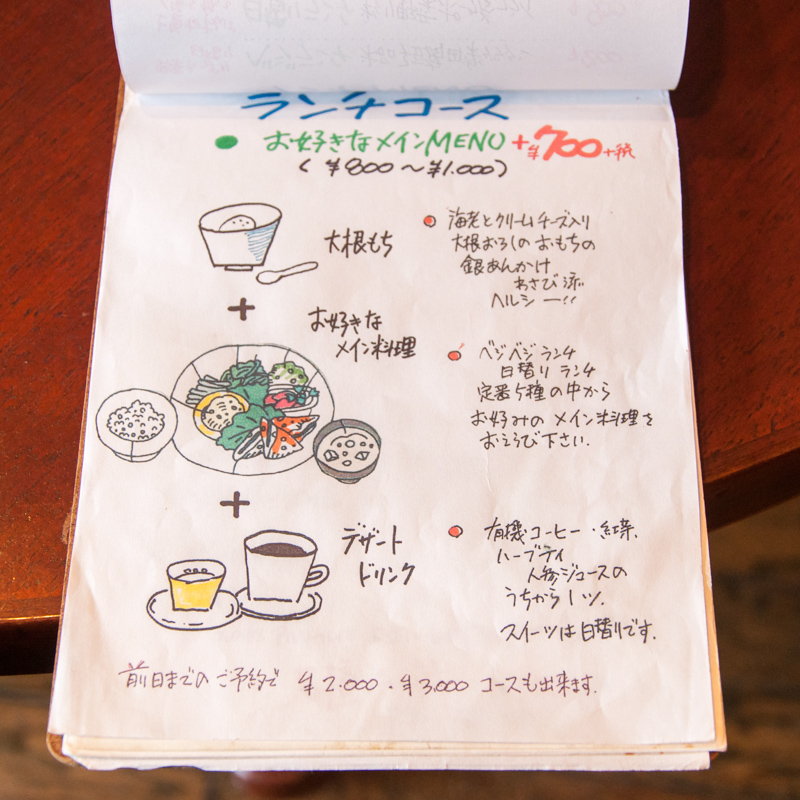 ランチコース
● お好きなメインMENU +¥700+税
(¥800〜¥1.000)
大根もち
海老とクリームチーズ入り
大根おろしのおもちの
銀あんかけ
わさび添
ヘルシー!!
+
お好きな
メイン料理
ベジベジランチ
日替りランチ
定番5種の中から
お好みのメイン料理を
おえらび下さい.
+
デザート
ドリンク
有機コーヒー・紅茶.
ハーブティ
人参ジュースの
うちから1ツ.
スイーツは日替りです.
前日までのご予約で ¥2.000・¥3.000 コースも出来ます.